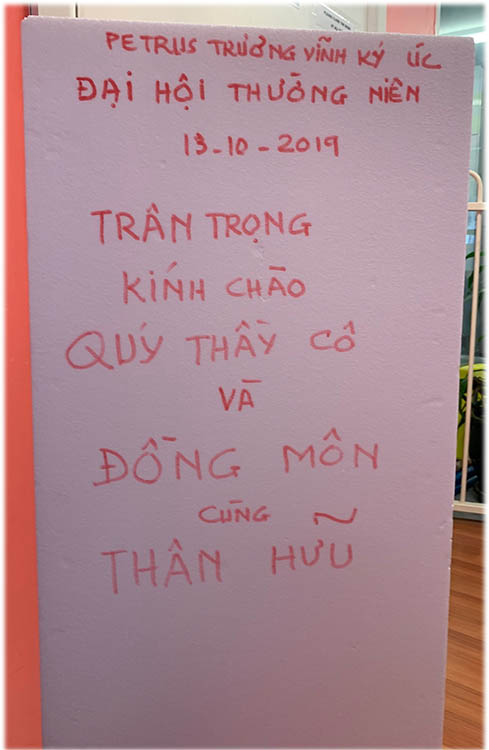 PETRUS TRƯƠNG VĨNH KÝ ÚC
ĐẠI HỘI THƯỜNG NIÊN
13-10-2019
TRÂN TRỌNG
KÍNH CHÀO
QUÝ THẦY CÔ
VÀ
ĐỒNG MÔN
CÙNG
THÂN HỮU